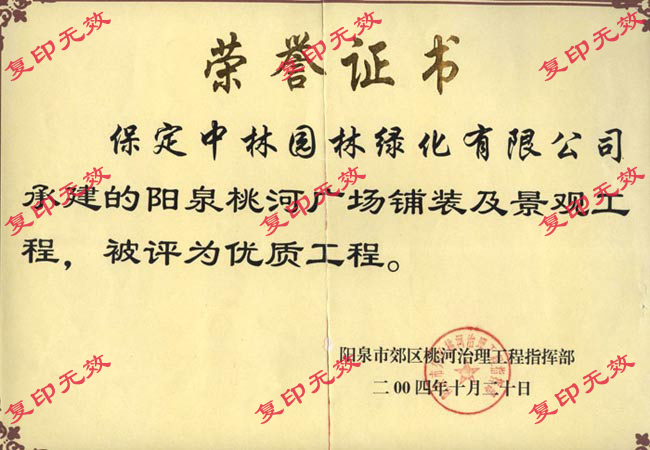 荣誉证书
保定中林园林绿化有限公司
承建的阳泉桃河广场铺装及景观工
程，被评为优质工程。
阳泉市郊区桃河治理工程指挥部
二00四年十月二十日
复印无效
复印无效
复印无效
复印无效
复印无效
复印无效
复印无效
复印无效
复印无效
复印无效
复印无效
复印无效